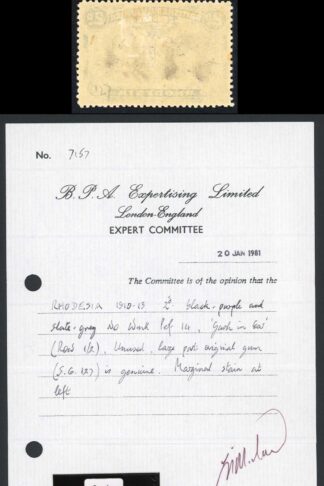 No. 7157
B. P. A. Expertising Limited
London England
EXPERT COMMITTEE
20 JAN 1981
The Committee is of the opinion that the
RHODESIA 1910-13 2d black-purple and
slate-grey No Wmk Perf 14, 'Gash in Ear'
(Row 1/2), Unused, large part original gum
(S.G. 127) is genuine. Marginal stain at
left